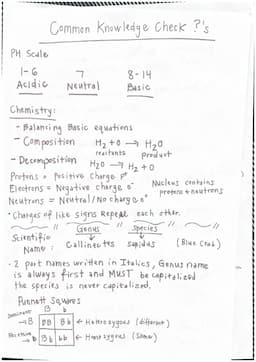 Common Knowledge Check ?'s
PH Scale
1-6 7 8-14
Acidic Neutral Basic
Chemistry:
- Balancing Basic equations
- Composition H2 + O → H2O
reactants product
- Decomposition H2O → H2 + O
Protons = Positive Charge P+
Electrons = Negative charge e-
Nucleus contains
protons + neutrons
Neutrons = Neutral/No charge
• Charges of like signs Repeal each other.
Genus Species
Scientific
Name: Callinectes sapidus (Blue Crab)
- 2 part names written in Italics, Genus name
is always first and MUST be capitalized
the species is never capitalized.
Punnett Squares
B b
Dominant → B BB Bb ← Heterozygous (different)
Recessive → b Bb bb ← Homozygous (Same)